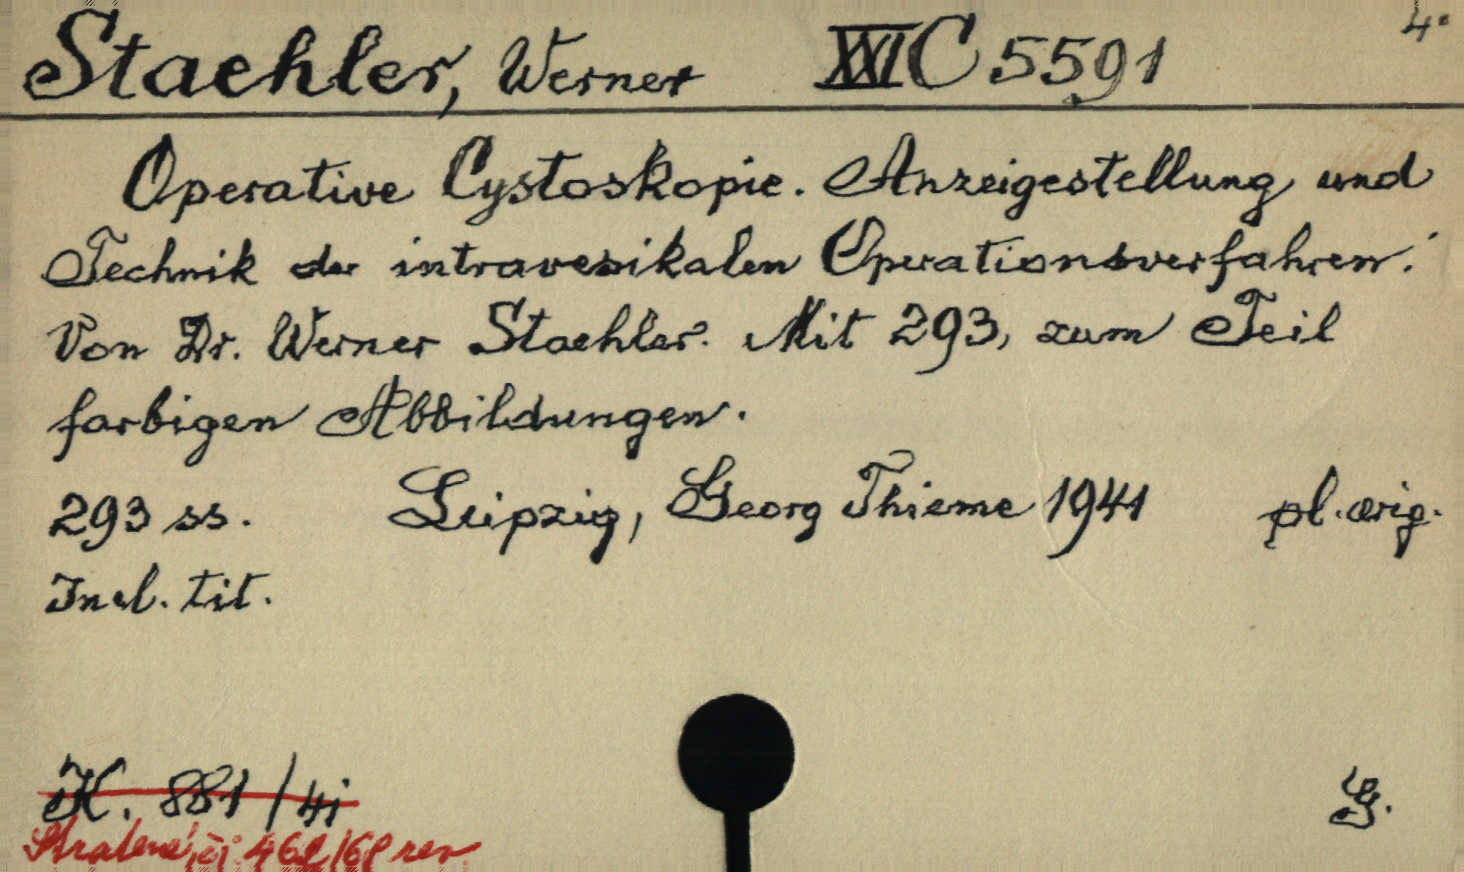 Staehler, Werner XXI C 5591 4°
Operative Cystoskopie. Anzeigestellung und
Technik der intravesikalen Operationsverfahren.
Von Dr. Werner Staehler. Mit 293, zum Teil
farbigen Abbildungen.
293 ss. Leipzig, Georg Thieme 1941 pl. orig.
Incl. tit.
K. 881/41
Ztraceno, čj. 468/68 rev.
G.